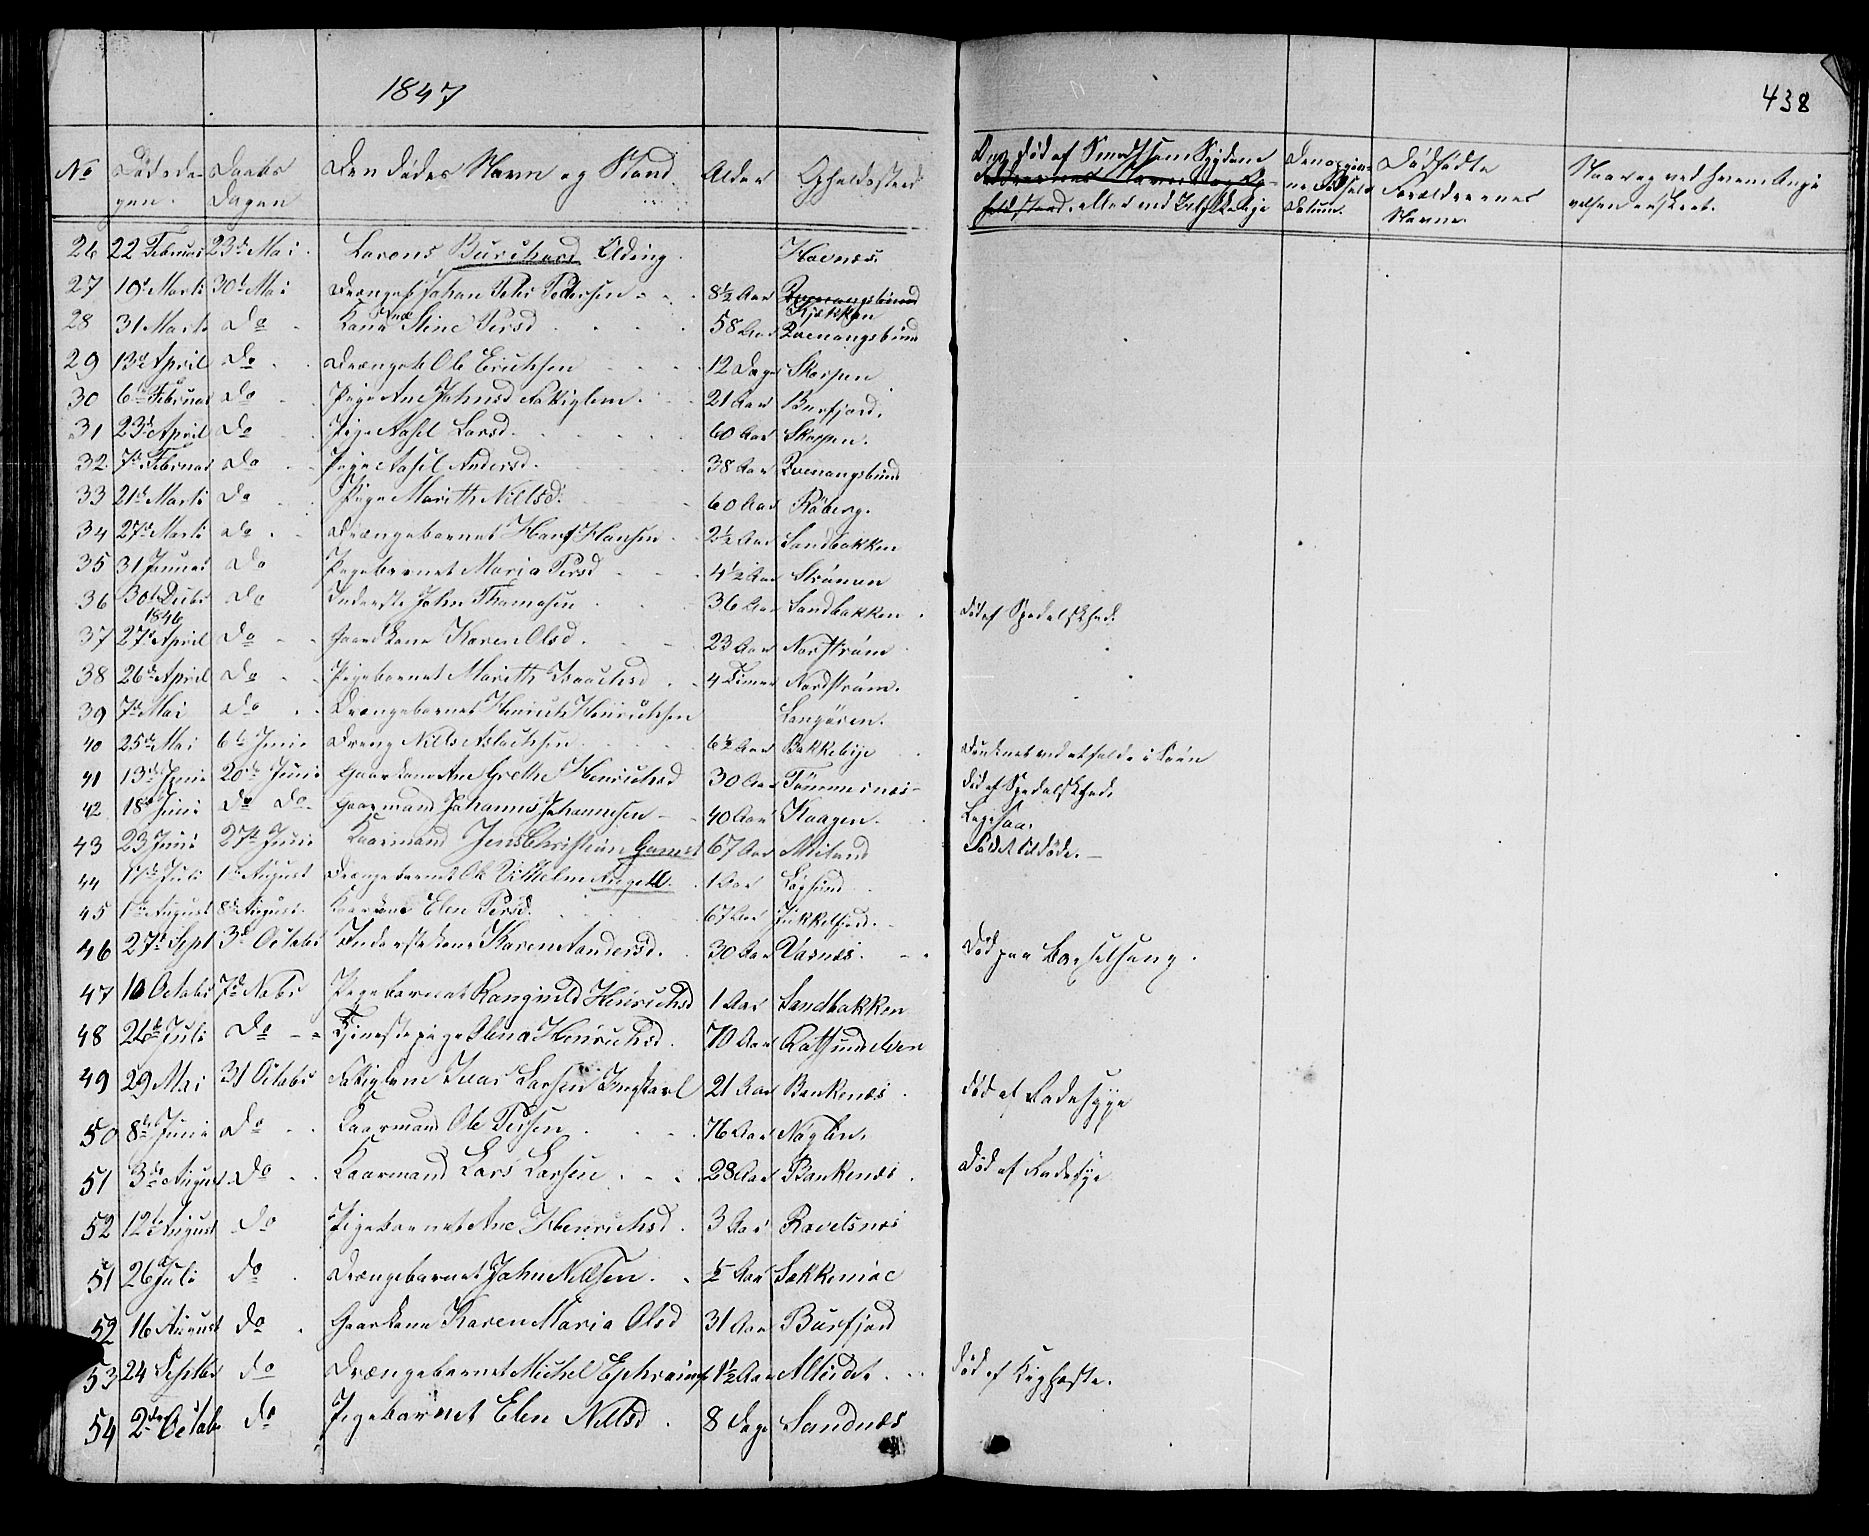 1847
438
No Dödsda- Daabs Den dödes Navn og Stand Alder Opholdssted
gen. Dagen
Død af Smitsom Sygdom Dødfødte
Forældrenes
Navne
26 22 Februar 23de Mai. Lorens Burchard Elding. Havnæs.
27 10de Marts 30te Mai Drængeb Johan Peter Pedersen 8½ Aar Kjækken
28 31 Marts Do Kone Stine Persd 58 Aar Qvenangsbund
29 13de April Do Drængeb Ole Erichsen 12 Dage Skorpen
30 6te Februar Do Pige Ane Johnsd Fattiglem. 21 Aar Burfjord.
31 23de April Do Pige Aahil Larsd. 60 Aar Skorpen.
32 7de Februar Do Pige Aahil Andersd. 38 Aar Qvenangsbund
33 21de Marts Do Pige Marith Nillsd. 60 Aar Råberg.
34 27de Marts Do Drængebarnet Hans Hansen 2½ Aar Sandbakken
35 31 Januar Do Pigebarnet Maria Persd 4½ Aar Strömen
36 30te Decbr 1846 Do Inderste John Thomasen 36 Aar Sandbakken. Död af Spedalskhed.
37 27de April Do Gaardkone Karen Olsd. 23 Aar Norström
38 26de April Do Pigebarnet Marith Isaachsd 4 Timer Nordström.
39 7de Mai Do Drængebarnet Henrich Henrichsen Langören.
40 25de Mai 6te Junii Dreng Nils Aslachsen 6½ Aar Bakkebye
41 13de Junii 20de Junii Gaardkone Ane Grethe Henrichsd 30 Aar Tömmernæs Död af Spedalskhed.
42 18de Junii Do Do Gaarmand Johannes Johannesen 40 Aar Kaagen.
43 23 Junii 27de Junii Kaarmand Jens Christian 67 Aar
44 17de Juli 1ste August Drængebarnet Ole Vilhelm Angell. 1 Aar Lögsund
45 1ste August 8de August. Kaarkone Elen Persd. 67 Aar Jukkelfjord.
46 27de Sept 3de Octobr Inderstekone Karen Andersd. 30 Aar Vasnæs. Död paa Barselseng.
47 10 Octobr 7de Nobr Pigebarnet Rangnild Henrichsd 1 Aar Sandbakken
48 26de Juli Do Tjenestepige Henrichsd. 70 Aar Rotsundelven
49 29 Mai 31 Octobr Fattiglem Ivar Larsen 21 Aar Bankenæs. Död af Radesyge
50 8de Junii Do Kaarmand Ole Persen 76 Aar Nøglen.
51 3de August Do Kaarmand Lars Larsen 28 Aar Bankenæs. Död af Radesyge
52 12te August Do Pigebarnet Ane Henrichsd. 3 Aar Ravelsnæs
51 26de Juli Do Drængebarnet John Nillsen. Aar Sækkemoe
52 16 August Do Gaarkone Karen Maria Olsd 31 Aar Burfjord
53 24 Septbr Do Drængebarnet Michel Ephraims 1½ Aar Alteidet. Död af Kighoste.
54 2de Octobr Do Pigebarnet Elen Nillsd. 8 Dage Sandnæs